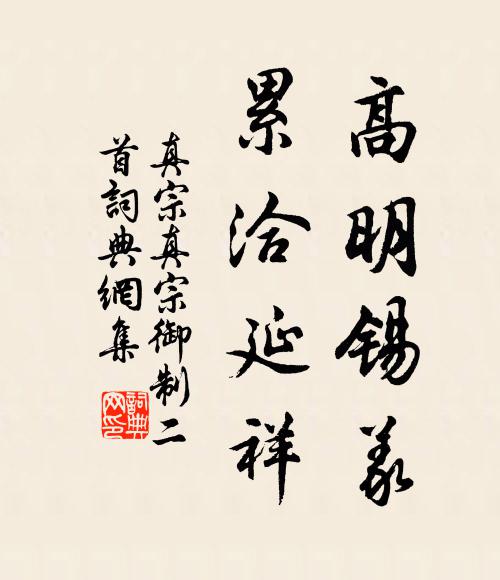 高明錫羨
累洽延祥
真宗真宗御制二
首詞典網集
詞典
网印